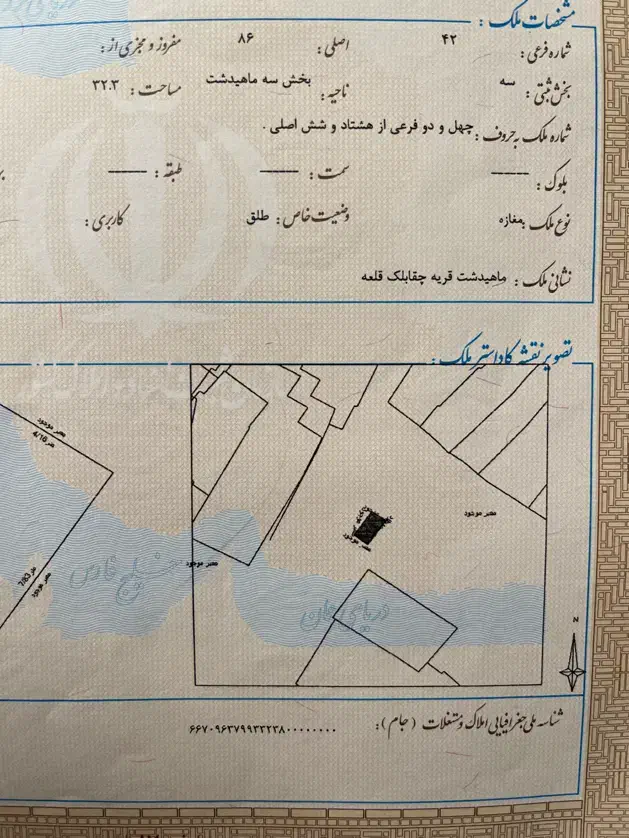 مشخصات ملک :
شماره فرعی : ۴۲ اصلی : ۸۶ مفروز و مجزی از :
بخش ثبتی : سه ناحیه : بخش سه ماهیدشت مساحت : ۳۲.۳
شماره ملک به حروف : چهل و دو فرعی از هشتاد و شش اصلی .
بلوک : ــــــ سمت : ــــــ طبقه : ــــــ
نوع ملک : مغازه وضعیت خاص : طلق کاربری :
نشانی ملک : ماهیدشت قریه چقابلک قلعه
تصویر نقشه کاداستر ملک :
معبر موجود
4/16 متر
معبر موجود
معبر موجود
معبر موجود
7/83 متر
معبر موجود
خلیج فارس
دریای عمان
N
شناسه ملی جغرافیایی املاک و مستغلات (جام) : ۶۶۷۰۹۶۳۷۹۹۳۳۲۳۸۰۰۰۰۰۰۰۰